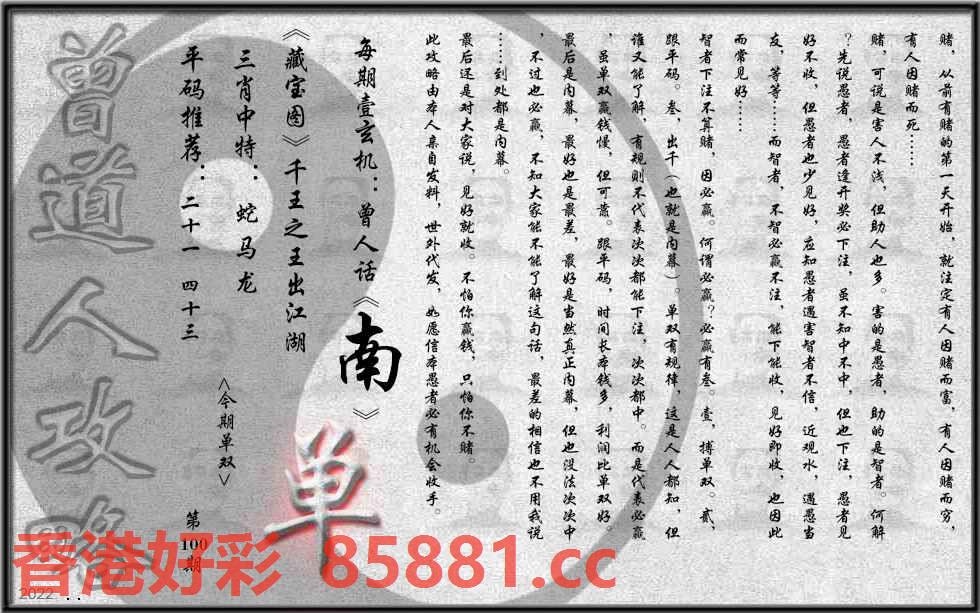 赌，从前有赌的第一天开始，就注定有人因赌而富，有人因赌而穷，
有人因赌而死……
赌，可说是害人不浅，但助人也多。害的是愚者，助的是智者。何解
？先说愚者，愚者逢开奖必下注，虽不知中不中，但也下注，愚者见
好不收，但愚者也少见好，应知愚者遇害智者不信，近观水，遇愚当
友，等等……而智者，不智必赢不注，能下能收，见好即收，也因此
而常见好……
智者下注不算赌，因必赢。何谓必赢？必赢有叁。壹，搏单双。贰，
跟平码。叁，出千（也就是内幕）。单双有规律，这是人人都知，但
谁又能了解，有规则不代表次次都能下注，次次都中。而是代表必赢
，虽单双赢钱慢，但可靠。跟平码，时间长本钱多，利润比单双好。
最后是内幕，最好也是最差，最好是当然真正内幕，但也没法次次中
，不过也必赢，不知大家能不能了解这句话，最差的相信也不用我说
……到处都是内幕。
最后还是对大家说，见好就收。不怕你赢钱，只怕你不赌。
此攻略由本人亲自发料，世外代发，如愿信本愚者必有机会收手。
每期壹玄机：曾人话《南》
《藏宝图》千王之王出江湖
三肖中特：蛇马龙
平码推荐：二十一 四十三
<今期单双>
单
第100期
曾道人攻略
香港好彩 85881.cc
2022